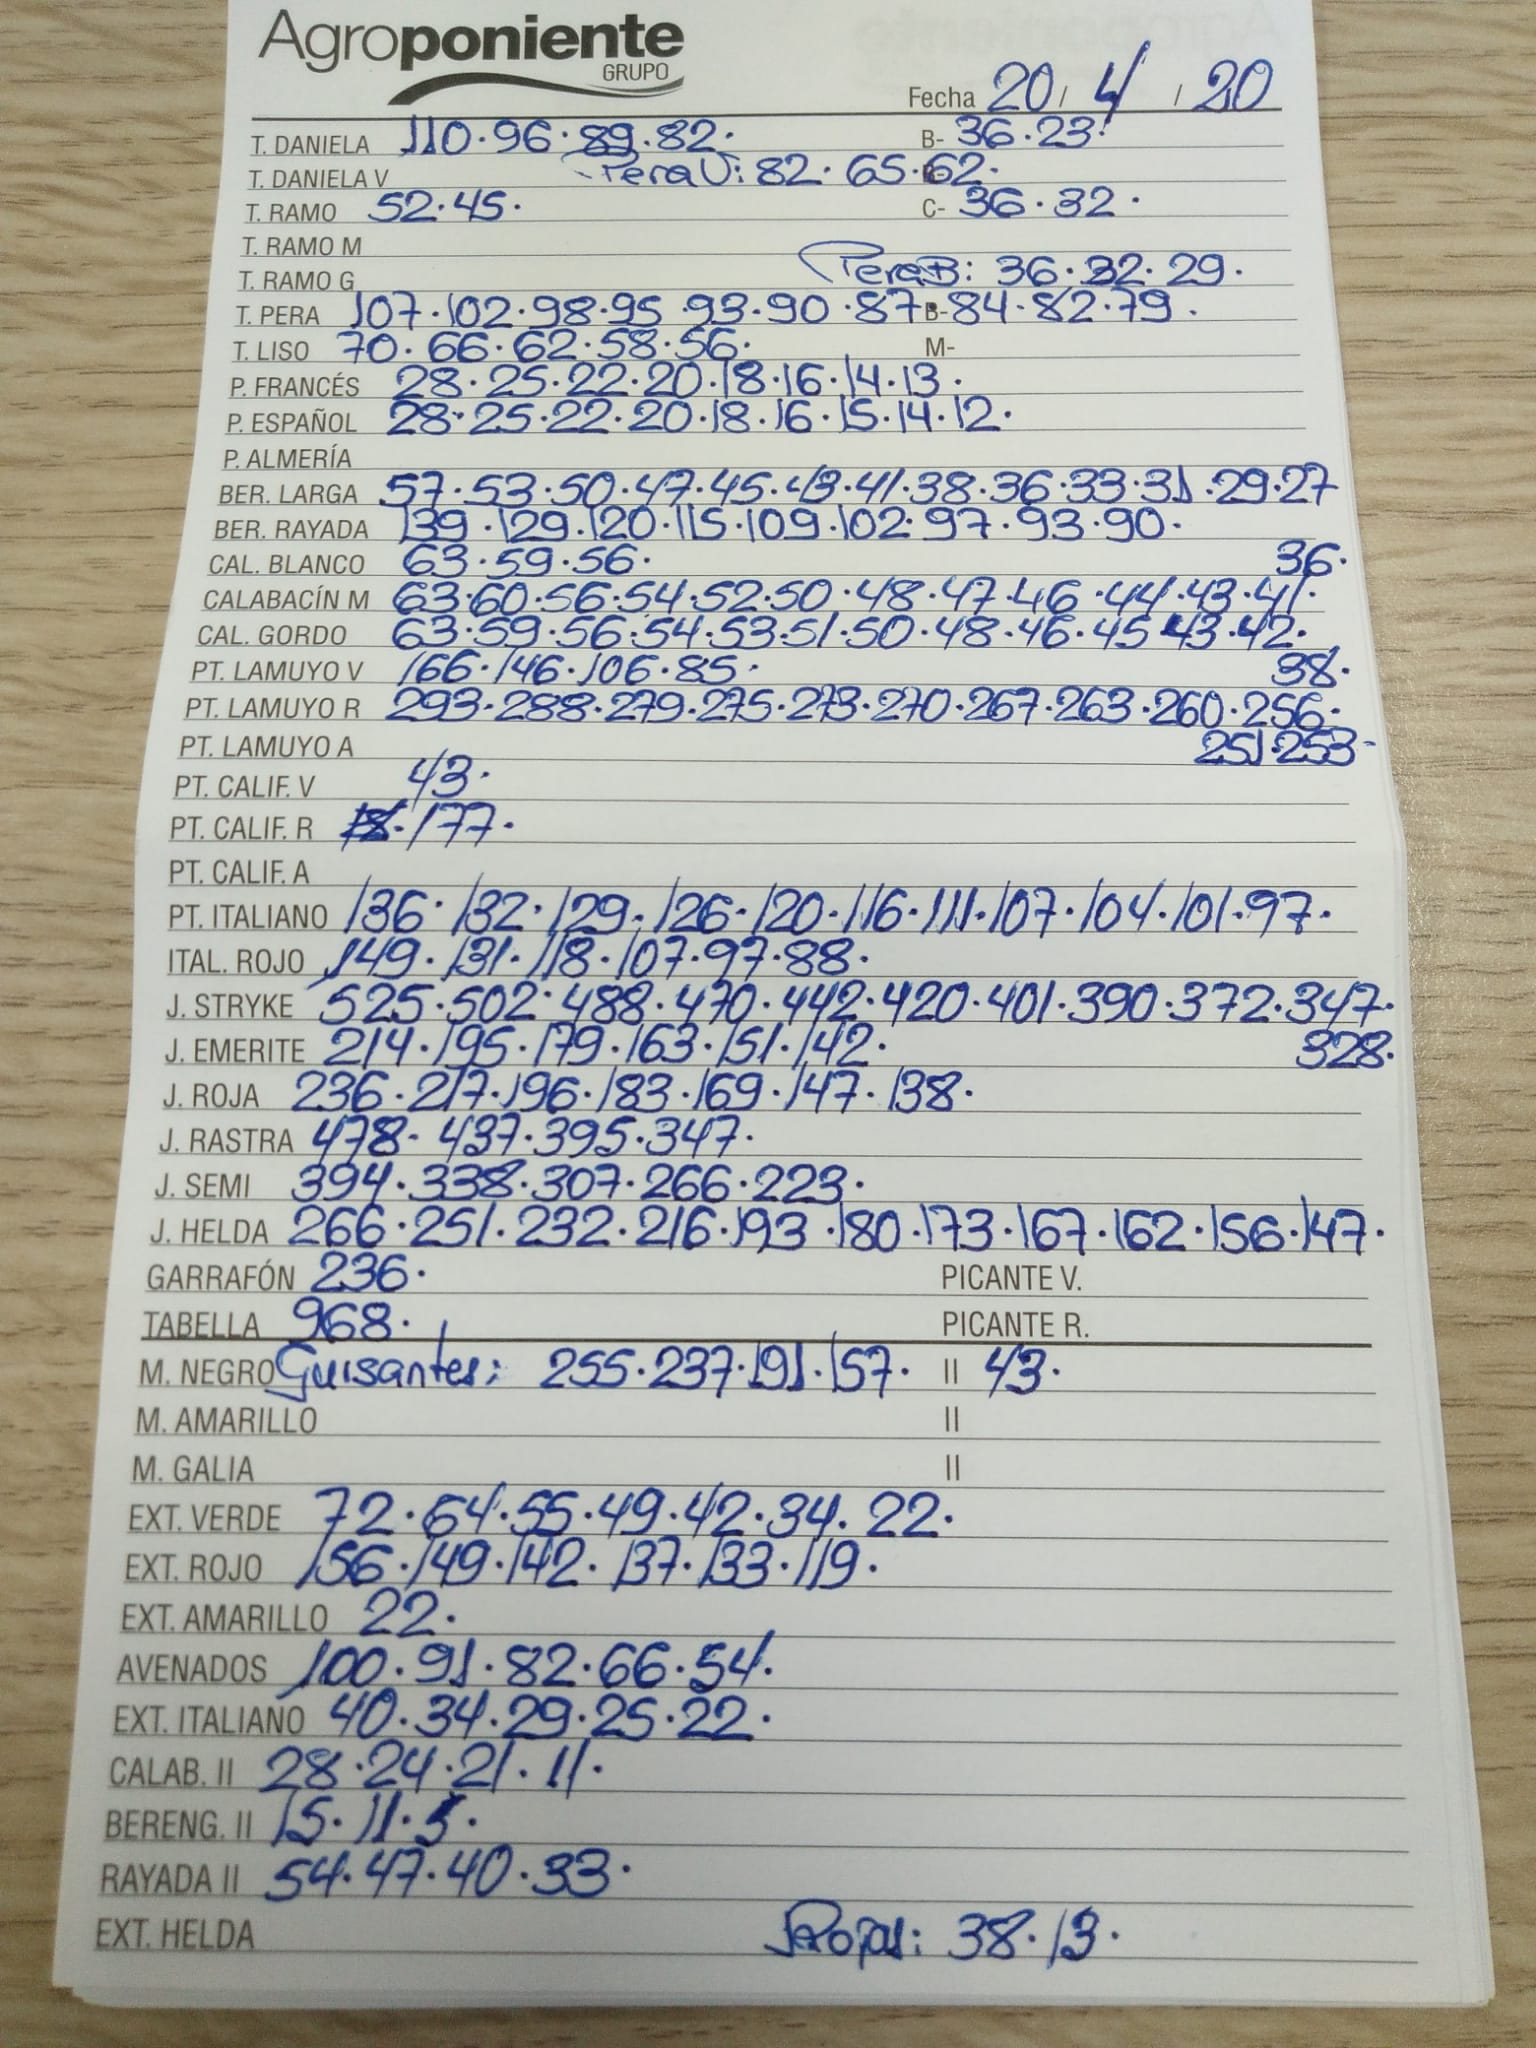 Agroponiente
GRUPO
Fecha 20 / 4 / 20
T. DANIELA 110·96·89·82· B- 36·23·
T. DANIELA V Pera V: 82·65·62·
T. RAMO 52·45· C- 36·32·
T. RAMO M
T. RAMO G Pera B: 36·32·29·
T. PERA 107·102·98·95·93·90·87· B- 84·82·79·
T. LISO 70·66·62·58·56· M-
P. FRANCÉS 28·25·22·20·18·16·14·13·
P. ESPAÑOL 28·25·22·20·18·16·15·14·12·
P. ALMERÍA
BER. LARGA 57·53·50·47·45·43·41·38·36·33·31·29·27
BER. RAYADA 139·129·120·115·109·102·97·93·90·
CAL. BLANCO 63·59·56· 36·
CALABACÍN M 63·60·56·54·52·50·48·47·46·44·43·41·
CAL. GORDO 63·59·56·54·53·51·50·48·46·45·43·42·
PT. LAMUYO V 166·146·106·85· 38·
PT. LAMUYO R 293·288·279·275·273·270·267·263·260·256·
PT. LAMUYO A 251·253·
PT. CALIF. V 43·
PT. CALIF. R 177·
PT. CALIF. A
PT. ITALIANO 136·132·129·126·120·116·111·107·104·101·97·
ITAL. ROJO 149·131·118·107·97·88·
J. STRYKE 525·502·488·470·442·420·401·390·372·347·
J. EMERITE 214·195·179·163·151·142· 328·
J. ROJA 236·217·196·183·169·147·138·
J. RASTRA 478·437·395·347·
J. SEMI 394·338·307·266·223·
J. HELDA 266·251·232·216·193·180·173·167·162·156·147·
GARRAFÓN 236· PICANTE V.
TABELLA 968· PICANTE R.
M. NEGRO Guisantes: 255·237·191·157· II 43·
M. AMARILLO II
M. GALIA II
EXT. VERDE 72·64·55·49·42·34·22·
EXT. ROJO 156·149·142·137·133·119·
EXT. AMARILLO 22·
AVENADOS 100·91·82·66·54·
EXT. ITALIANO 40·34·29·25·22·
CALAB. II 28·24·21·11·
BERENG. II 15·11·5·
RAYADA II 54·47·40·33·
EXT. HELDA Rojas: 38·13·